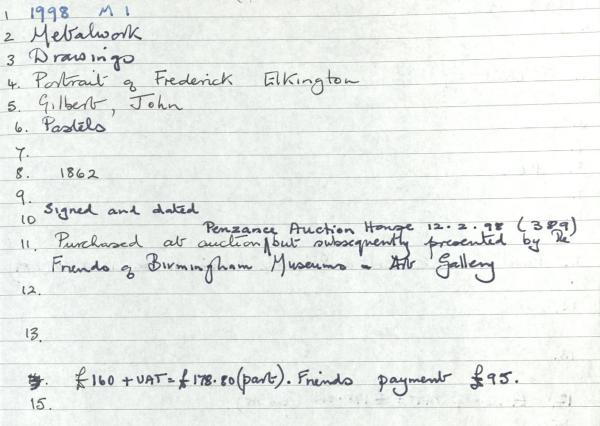 1 1998 M 1
2 Metalwork
3 Drawings
4. Portrait of Frederick Elkington
5. Gilbert, John
6. Pastels
7.
8. 1862
9.
10 Signed and dated
Penzance Auction House 12.2.98 (389)
11. Purchased at auction, but subsequently presented by the
Friends of Birmingham Museums & Art Gallery
12.
13.
£160 + VAT = £178.80 (part). Friends payment £95.
15.